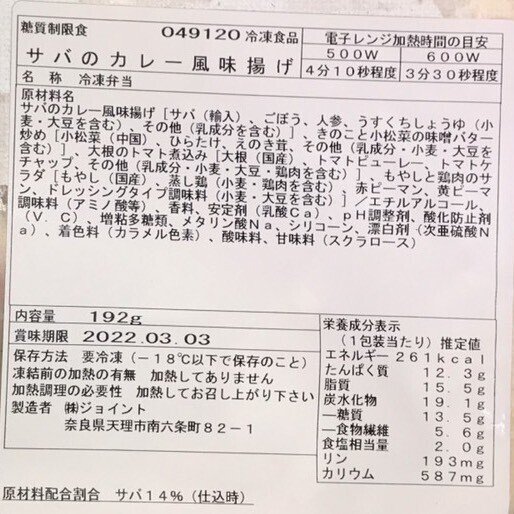 糖質制限食　049120 冷凍食品
サバのカレー風味揚げ
電子レンジ加熱時間の目安
500W　600W
4分10秒程度　3分30秒程度
名　称　冷凍弁当
原材料名
サバのカレー風味揚げ［サバ（輸入）、ごぼう、人参、うすくちしょうゆ（小
麦・大豆を含む）、その他（乳成分を含む）］、きのこと小松菜の味噌バター
炒め［小松菜（中国）、ひらたけ、えのき茸、その他（乳成分・小麦・大豆を
含む）］、大根のトマト煮込み［大根（国産）、トマトピューレー、トマトケ
チャップ、その他（乳成分・小麦・大豆・鶏肉を含む）］、もやしと鶏肉のサ
ラダ［もやし（国産）、蒸し鶏（小麦・大豆・鶏肉を含む）、赤ピーマン、黄ピーマ
ン、ドレッシングタイプ調味料（小麦・大豆を含む）］／エチルアルコール、
調味料（アミノ酸等）、香料、安定剤（乳酸Ca）、pH調整剤、酸化防止剤
（V．C）、増粘多糖類、メタリン酸Na、シリコーン、漂白剤（次亜硫酸N
a）、着色料（カラメル色素）、酸味料、甘味料（スクラロース）
内容量　192g
賞味期限　2022.03.03
保存方法　要冷凍（－18℃以下で保存のこと）
凍結前の加熱の有無　加熱してありません
加熱調理の必要性　加熱してお召し上がり下さい
製造者　㈱ジョイント
奈良県天理市南六条町82－1
原材料配合割合　サバ14％（仕込時）
栄養成分表示
（1包装当たり）推定値
エネルギー　261kcal
たんぱく質　12.3g
脂質　15.5g
炭水化物　19.1g
－糖質　13.5g
－食物繊維　5.6g
食塩相当量　2.0g
リン　193mg
カリウム　587mg